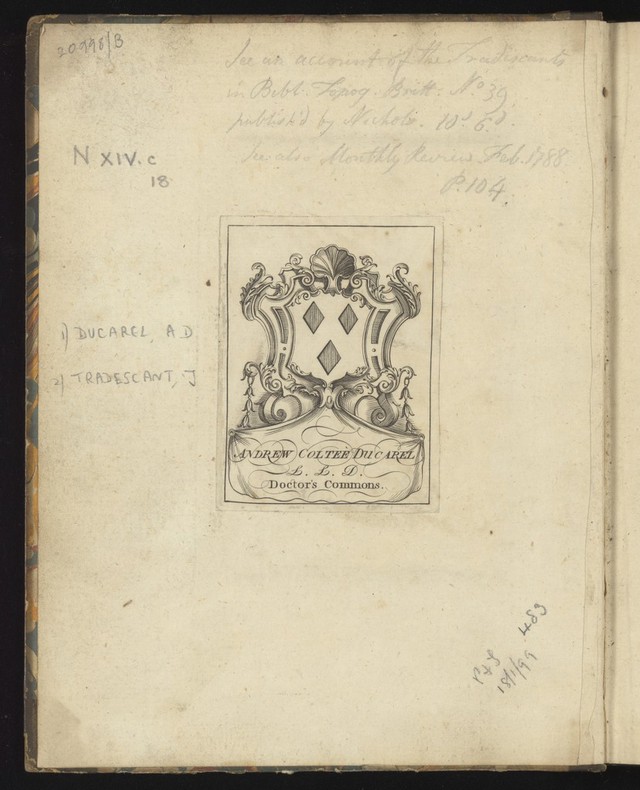 20998/B
See an account of the Tradescants
in Bibl. Topog. Britt: No 39
publish'd by Nichols. 10s 6d.
See also Monthly Review Feb. 1788
P. 104.
N XIV. c
18
1) DUCAREL, A D
2) TRADESCANT, J
ANDREW COLTEÉ DUCAREL
L. L. D.
Doctor's Commons.
489
P & S
18/1/99